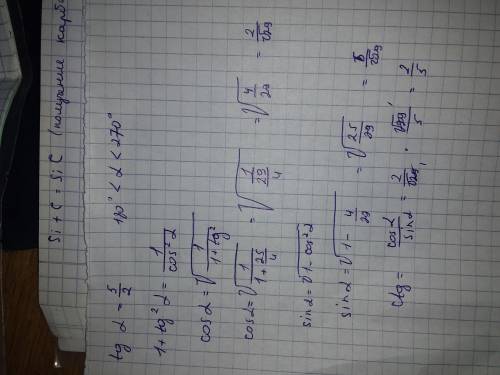 Si + C = SiC (получение карб
tg α = 5/2    180° < α < 270°
1 + tg² α = 1/cos² α
cos α = √(1/(1 + tg²))
cos α = √(1/(1 + 25/4)) = √(1/(29/4)) = √(4/29) = 2/√29
sin α = √(1 - cos² α)
sin α = √(1 - 4/29) = √(25/29) = 5/√29
ctg = cos α/sin α = 2/√29 · √29/5 = 2/5